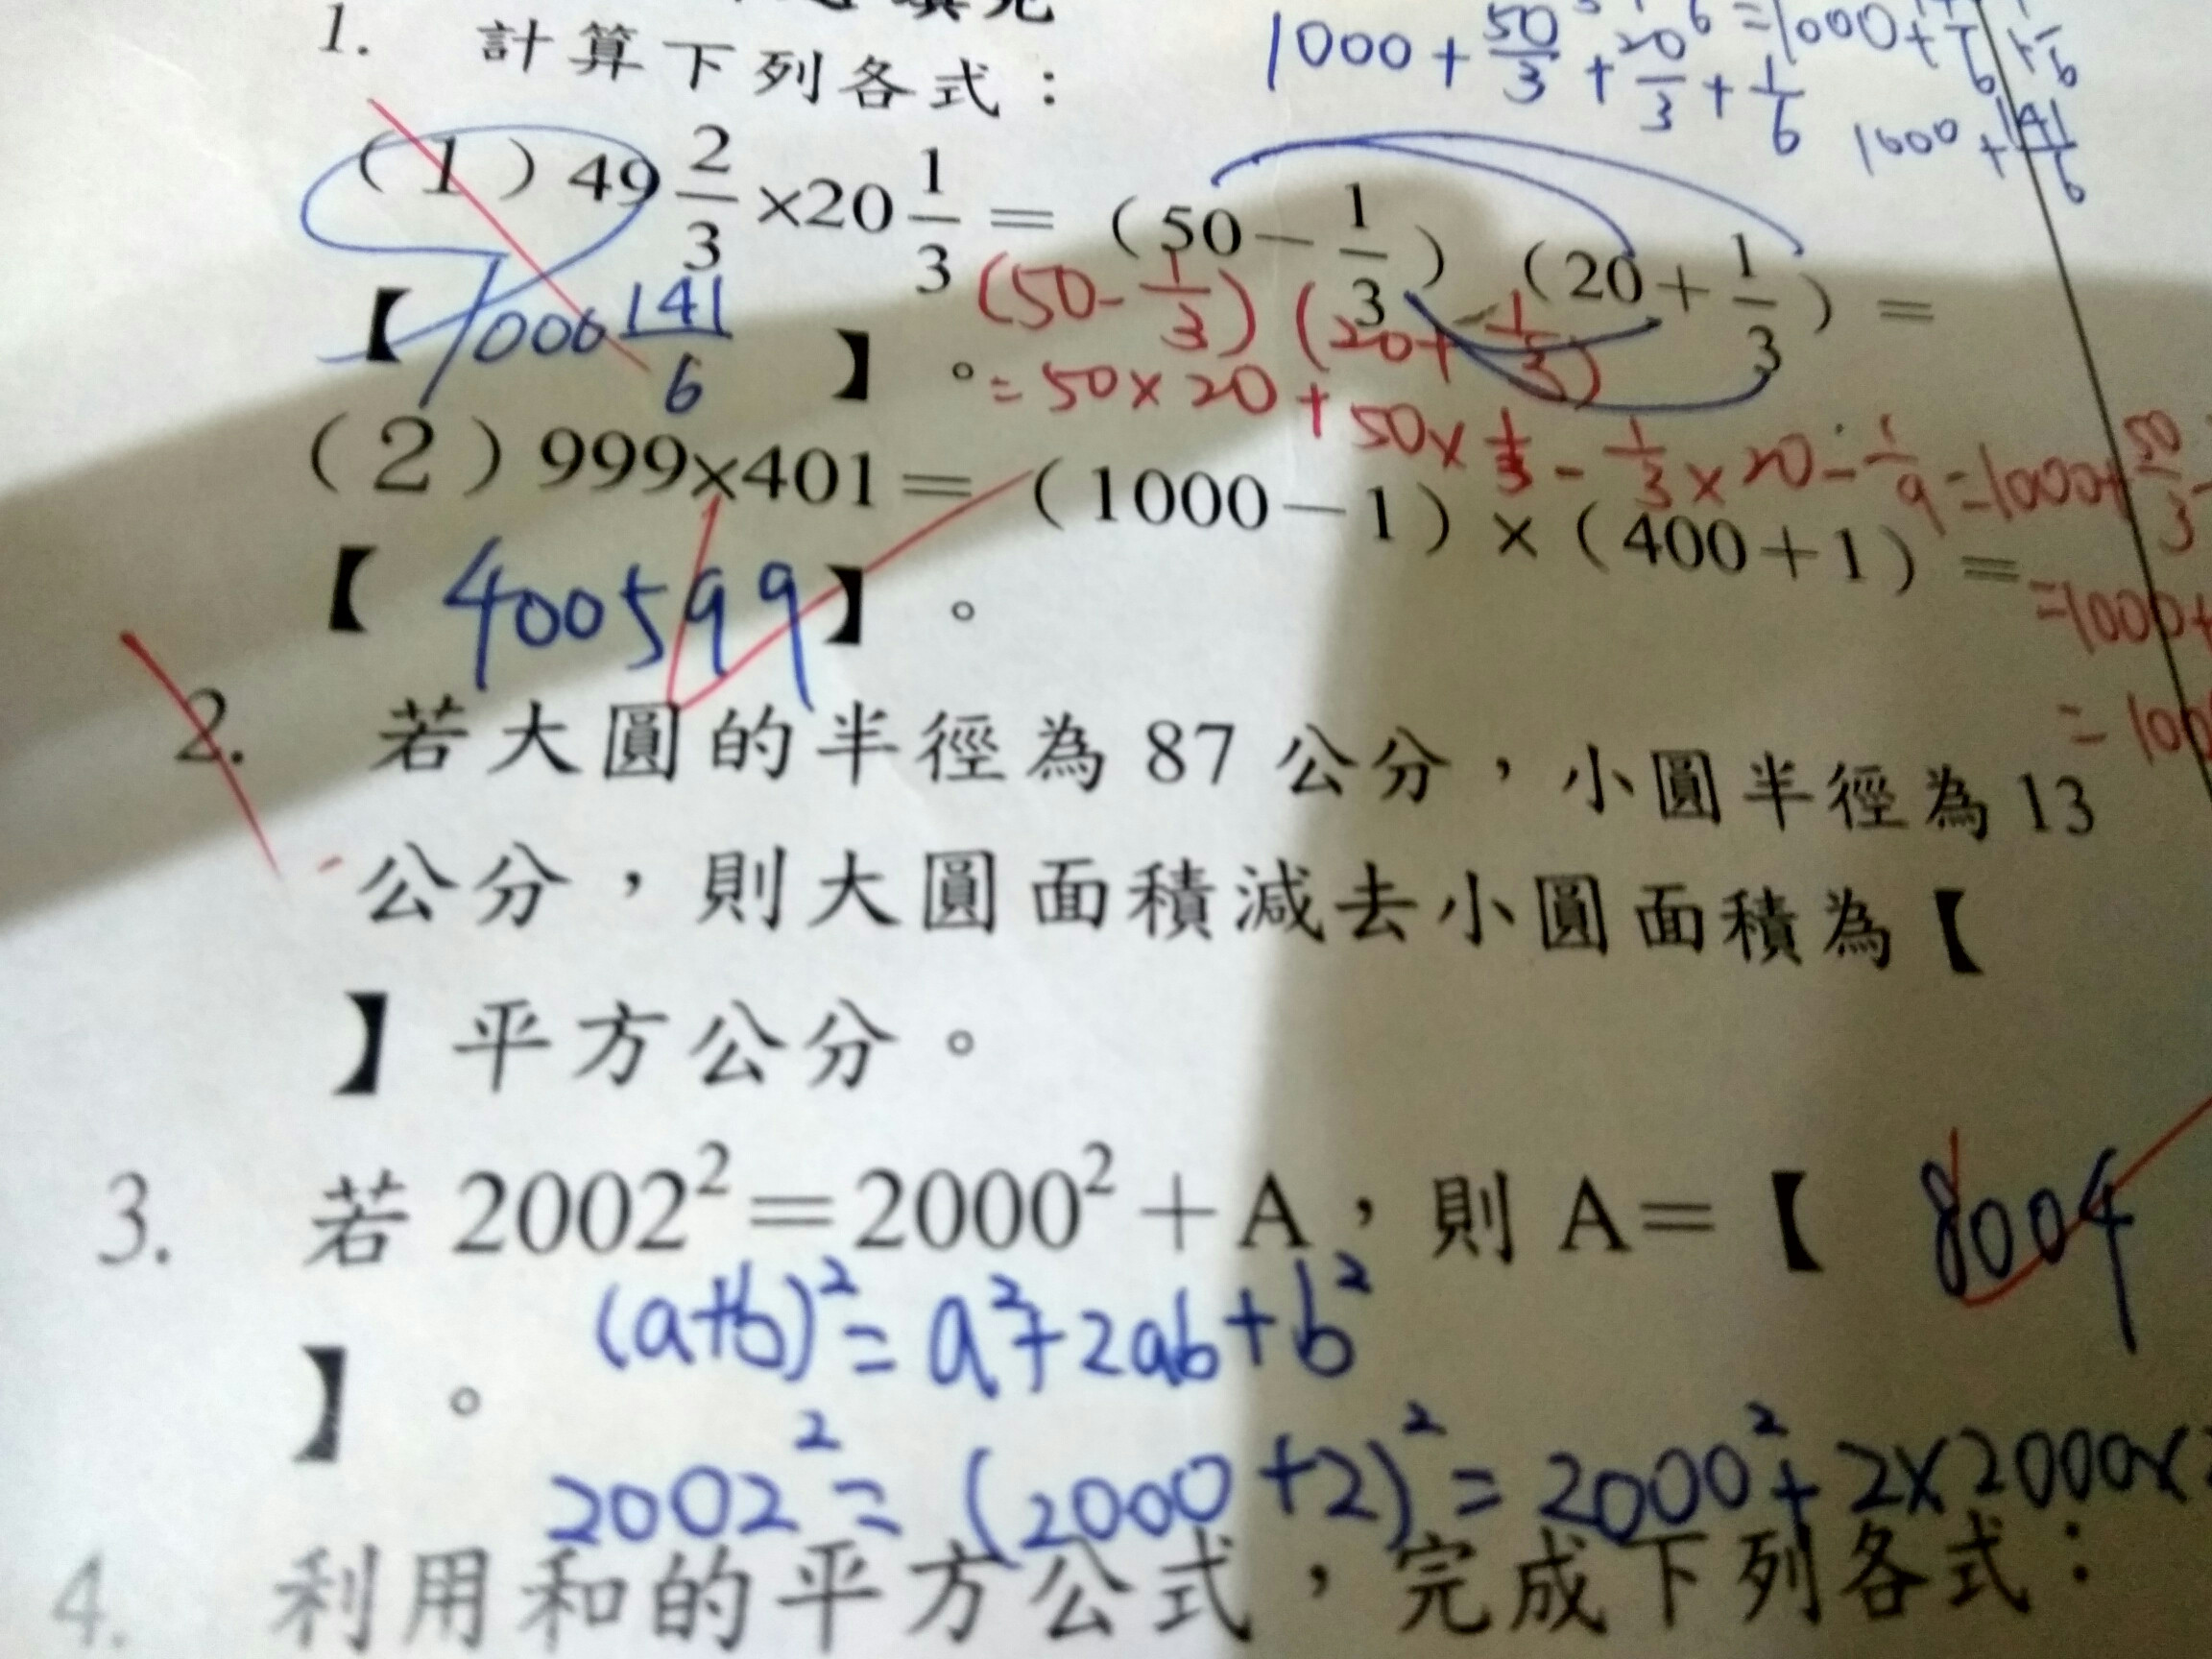 1. 計算下列各式：
1000+50/3+20/3+1/6
1000+141/6
(1) 49 2/3 ×20 1/3 =（50－1/3）（20＋1/3）＝
【 1000 141/6 】。
(50-1/3)(20+1/3)
=50×20+50×1/3-1/3×20-1/9=1000+50/3
(2) 999×401＝（1000－1）×（400＋1）＝
【 400599 】。
2. 若大圓的半徑為 87 公分，小圓半徑為 13
公分，則大圓面積減去小圓面積為【
】平方公分。
3. 若 2002²＝2000²＋A，則 A＝【 8004
】。
(a+b)²=a²+2ab+b²
2002²=(2000+2)²=2000²+2×2000×
4. 利用和的平方公式，完成下列各式：